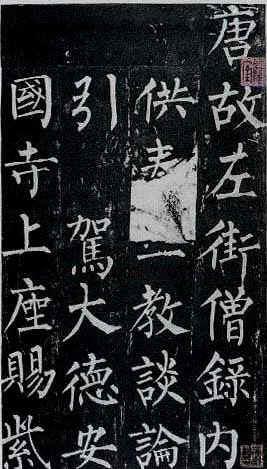 唐故左街僧録内
供
一教談論
引駕大德安
國寺上座賜紫